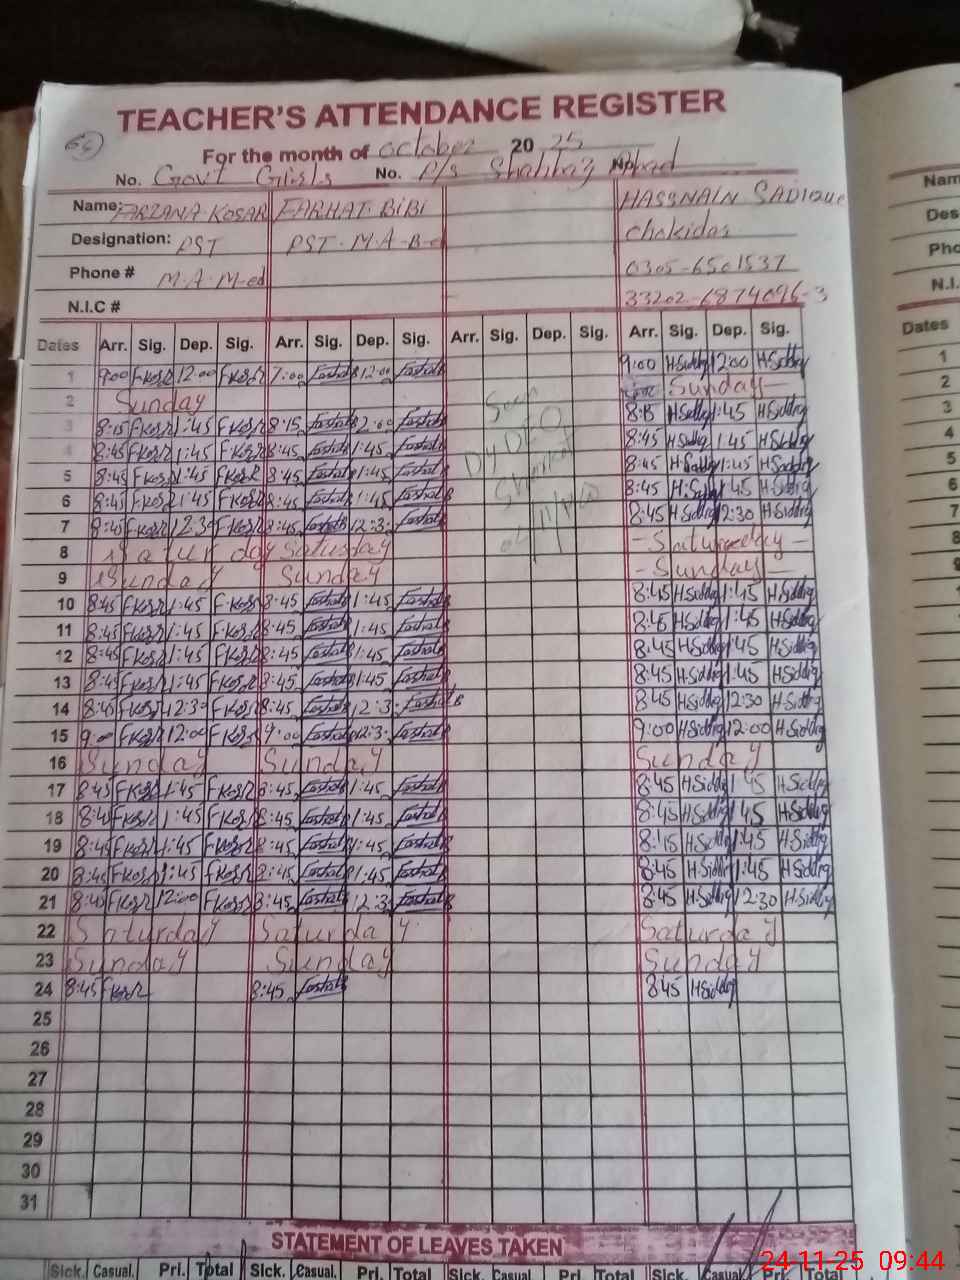 TEACHER'S ATTENDANCE REGISTER
64
For the month of october 20 25
No. Govt Girls No. P/s Shahbaz Abad No.
Name: FARZANA KOSAR FARHAT BIBI HASSNAIN SADIQUE
Designation: PST PST. M.A. B-ed chokidar
Phone # M.A. M-ed 0305-6501537
N.I.C # 33202-6874096-3
Dates Arr. Sig. Dep. Sig. Arr. Sig. Dep. Sig. Arr. Sig. Dep. Sig. Arr. Sig. Dep. Sig.
1 9:00 FKosr 12:00 FKosr 9:00 Farhat 12:00 Farhat 9:00 H.Siddiq 12:00 H.Siddiq
2 Sunday Sunday
3 8:15 FKosr 1:45 FKosr 8:15 Farhat 2:00 Farhat 8:15 H.Siddiq 1:45 H.Siddiq
4 8:45 FKosr 1:45 FKosr 8:45 Farhat 1:45 Farhat 8:45 H.Siddiq 1:45 H.Siddiq
5 8:45 FKosr 1:45 FKosr 8:45 Farhat 1:45 Farhat 8:45 H.Siddiq 1:45 H.Siddiq
6 8:45 FKosr 1:45 FKosr 8:45 Farhat 1:45 Farhat 8:45 H.Siddiq 1:45 H.Siddiq
7 8:45 FKosr 12:30 FKosr 8:45 Farhat 12:3 Farhat 8:45 H.Siddiq 12:30 H.Siddiq
Seen
Dy DEO
8 Saturday Saturday Saturday
9 Sunday Sunday Sunday
10 8:45 FKosr 1:45 FKosr 8:45 Farhat 1:45 Farhat 8:45 H.Siddiq 1:45 H.Siddiq
11 8:45 FKosr 1:45 FKosr 8:45 Farhat 1:45 Farhat 8:45 H.Siddiq 1:45 H.Siddiq
12 8:45 FKosr 1:45 FKosr 8:45 Farhat 1:45 Farhat 8:45 H.Siddiq 1:45 H.Siddiq
13 8:45 FKosr 1:45 FKosr 8:45 Farhat 1:45 Farhat 8:45 H.Siddiq 1:45 H.Siddiq
14 8:45 FKosr 12:30 FKosr 8:45 Farhat 12:3 Farhat 8:45 H.Siddiq 12:30 H.Siddiq
15 9:00 FKosr 12:00 FKosr 9:00 Farhat 12:3 Farhat 9:00 H.Siddiq 12:00 H.Siddiq
16 Sunday Sunday Sunday
17 8:45 FKosr 1:45 FKosr 8:45 Farhat 1:45 Farhat 8:45 H.Siddiq 1:45 H.Siddiq
18 8:45 FKosr 1:45 FKosr 8:45 Farhat 1:45 Farhat 8:45 H.Siddiq 1:45 H.Siddiq
19 8:45 FKosr 1:45 FKosr 8:45 Farhat 1:45 Farhat 8:15 H.Siddiq 1:45 H.Siddiq
20 8:45 FKosr 1:45 FKosr 8:45 Farhat 1:45 Farhat 8:45 H.Siddiq 1:45 H.Siddiq
21 8:45 FKosr 12:00 FKosr 8:45 Farhat 12:3 Farhat 8:45 H.Siddiq 12:30 H.Siddiq
22 Saturday Saturday Saturday
23 Sunday Sunday Sunday
24 8:45 FKosr 8:45 Farhat 8:45 H.Siddiq
25
26
27
28
29
30
31
STATEMENT OF LEAVES TAKEN
Sick. Casual. Pri. Total Sick. Casual. Pri. Total Sick. Casual Pri. Total Sick. Casual Pri. Total
Dates
1
2
3
4
5
6
7
8
9
24-11-25 09:44